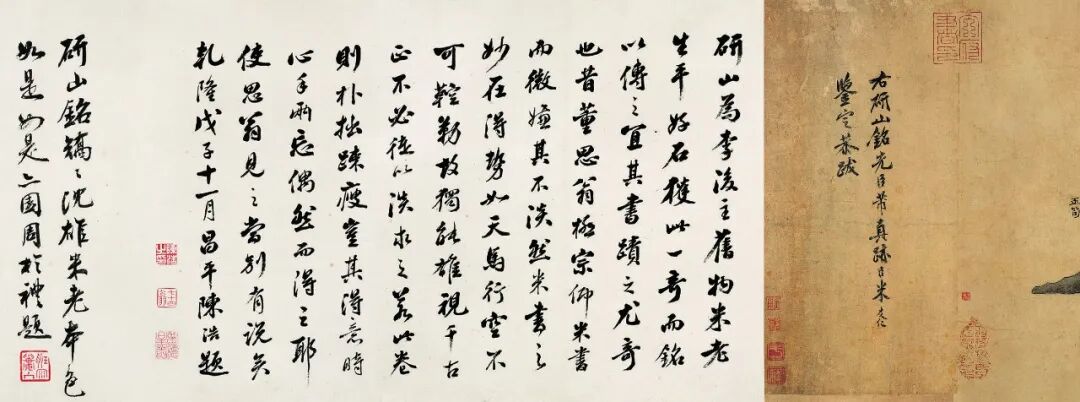 玉筍
右研山銘先臣芾真跡臣米友仁
鑒定恭跋
研山為李後主舊物米老
生平好石獲此一奇而銘
以傳之宜其書蹟之尤奇
也昔董思翁極宗仰米書
而微嫌其不淡然米書之
妙在得勢如天馬行空不
可鞚勒故獨能雄視千古
正不必徒以淡求之若此卷
則朴拙疎瘦豈其得意時
心手兩忘偶然而得之耶
使思翁見之當別有說矣
乾隆戊子十一月昌平陳浩題
研山銘矯〻沈雄米老本色
如是如是亦園周於禮題